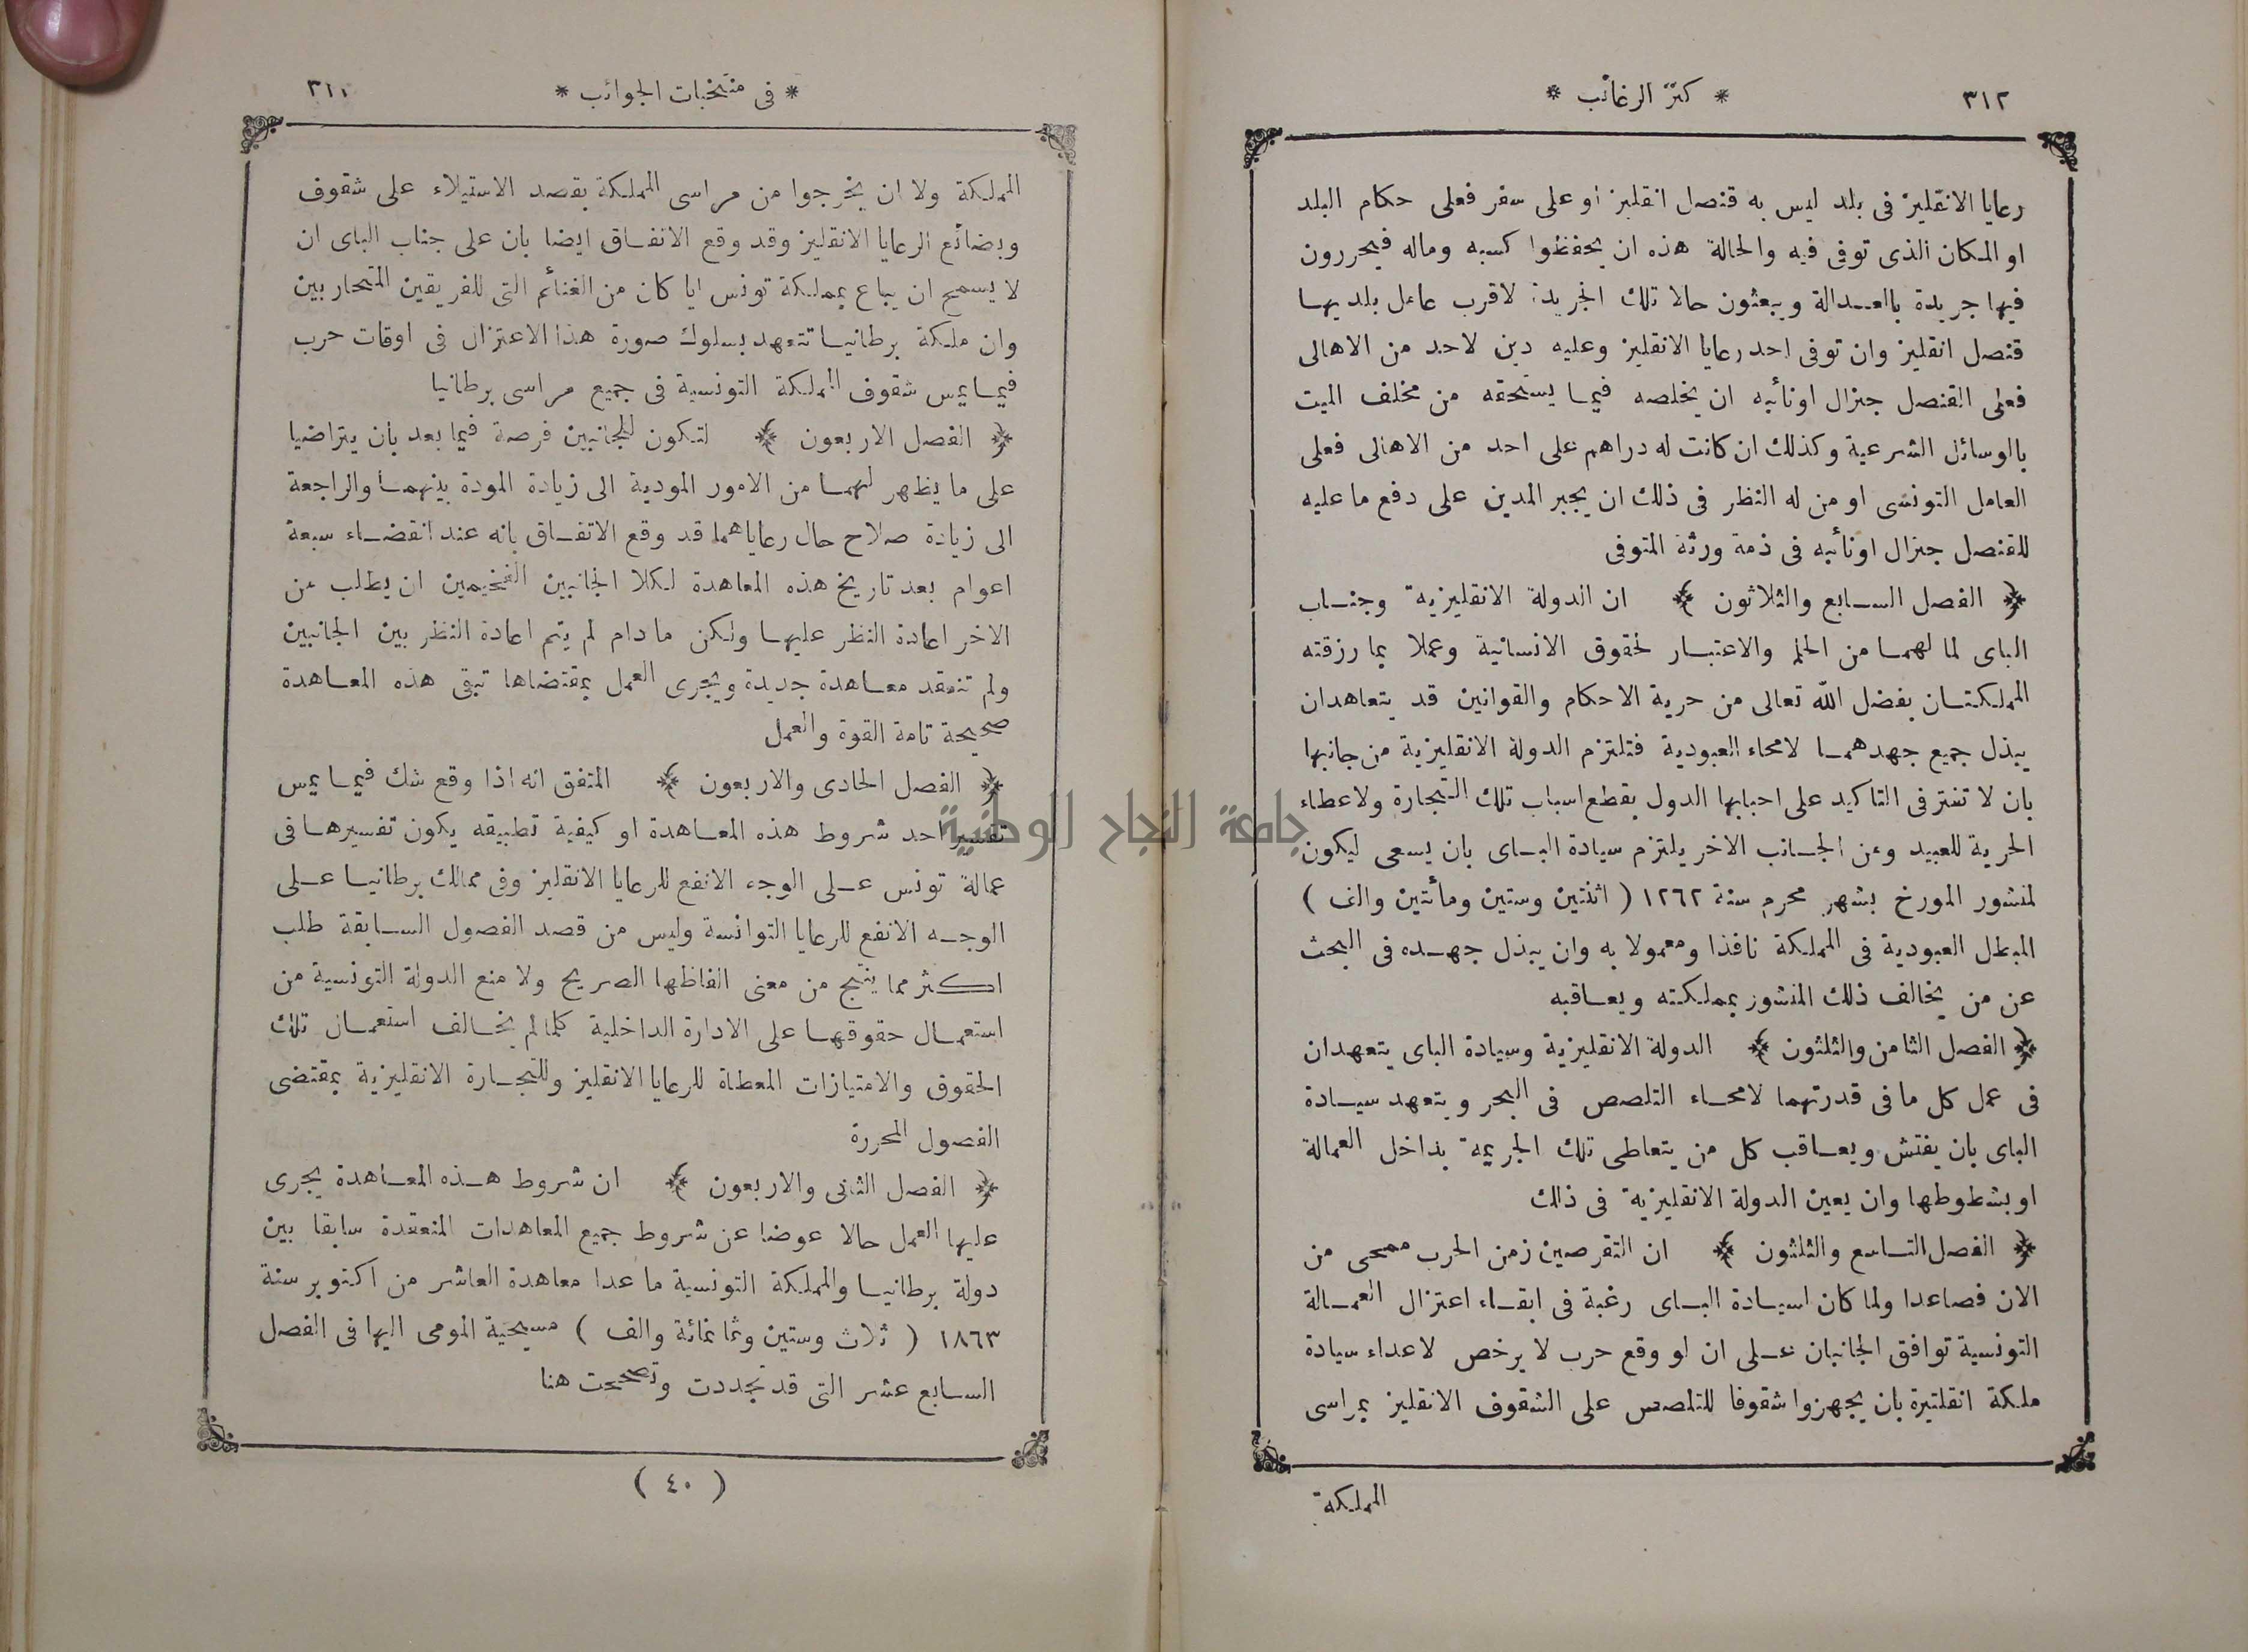 ٣١٢
* كنز الرغائب *
رعايا الانقليز فى بلد ليس به قنصل انقليز او على سفر فعلى حكام البلد
او المكان الذى توفى فيه والحالة هذه ان يحفظوا كسبه وماله فيحررون
فيها جريدة بالعدالة ويبعثون حالا تلك الجريدة لاقرب عامل بلد بها
قنصل انقليز وان توفى احد رعايا الانقليز وعليه دين لاحد من الاهالى
فعلى القنصل جنرال اونائبه ان يخلصه فيما يستحقه من مخلف الميت
بالوسائل الشرعية وكذلك ان كانت له دراهم على احد من الاهالى فعلى
العامل التونسى او من له النظر فى ذلك ان يجبر المدين على دفع ما عليه
للقنصل جنرال اونائبه فى ذمة ورثة المتوفى
﴿ الفصل السابع والثلاثون ﴾ ان الدولة الانقليزية وجناب
الباى لما لهما من الحلم والاعتبار لحقوق الانسانية وعملا بما رزقته
المملكتان بفضل الله تعالى من حرية الاحكام والقوانين قد يتعاهدان
يبذل جميع جهدهما لامحاء العبودية فتلتزم الدولة الانقليزية من جانبها
بان لا تفتر فى التاكيد على احبابها الدول بقطع اسباب تلك التجارة ولاعطاء
الحرية للعبيد وعن الجانب الاخر يلتزم سيادة الباى بان يسعى ليكون
لمنشور المورخ بشهر محرم سنة ١٢٦٢ ( اثنتين وستين ومأتين والف )
المبطل العبودية فى المملكة نافذا ومعمولا به وان يبذل جهده فى البحث
عن من يخالف ذلك المنشور بمملكته ويعاقبه
﴿ الفصل الثامن والثلثون ﴾ الدولة الانقليزية وسيادة الباى يتعهدان
فى عمل كل ما فى قدرتهما لامحاء التلصص فى البحر ويتعهد سيادة
الباى بان يفتش ويعاقب كل من يتعاطى تلك الجريمة بداخل العمالة
او بشطوطها وان يعين الدولة الانقليزية فى ذلك
﴿ الفصل التاسع والثلثون ﴾ ان التقرصين زمن الحرب ممحى من
الان فصاعدا ولما كان لسيادة الباى رغبة فى ابقاء اعتزال العمالة
التونسية توافق الجانبان على ان لو وقع حرب لا يرخص لاعداء سيادة
ملكة انقلتيرة بان يجهزوا شقوفا للتلصص على الشقوف الانقليز بمراسى
المملكة
* فى منتخبات الجوائب *
المملكة ولا ان يخرجوا من مراسى المملكة بقصد الاستيلاء على شقوف
وبضائع الرعايا الانقليز وقد وقع الاتفاق ايضا بان على جناب الباى ان
لا يسمح ان يباع بمملكة تونس ايا كان من الغنائم التى للفريقين المتحاربين
وان ملكة برطانيا تتعهد بسلوك صورة هذا الاعتزال فى اوقات حرب
فيما يمس شقوف المملكة التونسية فى جميع مراسى برطانيا
﴿ الفصل الاربعون ﴾ لتكون للجانبين فرصة فيما بعد بان يتراضيا
على ما يظهر لهما من الامور المودية الى زيادة المودة بينهما والراجعة
الى زيادة صلاح حال رعاياهما قد وقع الاتفاق بانه عند انقضاء سبعة
اعوام بعد تاريخ هذه المعاهدة لكلا الجانبين الفخيمين ان يطلب من
الاخر اعادة النظر عليها ولكن ما دام لم يتم اعادة النظر بين الجانبين
ولم تنعقد معاهدة جديدة ويجرى العمل بمقتضاها تبقى هذه المعاهدة
صحيحة تامة القوة والعمل
﴿ الفصل الحادى والاربعون ﴾ المتفق انه اذا وقع شك فيما يمس
تفسير احد شروط هذه المعاهدة او كيفية تطبيقه يكون تفسيرها فى
عمالة تونس على الوجه الانفع للرعايا الانقليز وفى ممالك برطانيا على
الوجه الانفع للرعايا التوانسة وليس من قصد الفصول السابقة طلب
اكثر مما ينتج من معنى الفاظها الصريح ولا منع الدولة التونسية من
استعمال حقوقها على الادارة الداخلية كلما لم يخالف استعمال تلك
الحقوق والامتيازات المعطاة للرعايا الانقليز وللتجارة الانقليزية بمقتضى
الفصول المحررة
﴿ الفصل الثانى والاربعون ﴾ ان شروط هذه المعاهدة يجرى
عليها العمل حالا عوضا عن شروط جميع المعاهدات المنعقدة سابقا بين
دولة برطانيا والمملكة التونسية ما عدا معاهدة العاشر من اكتوبر سنة
١٨٦٣ ( ثلاث وستين وثمانمائة والف ) مسيحية المومى اليها فى الفصل
السابع عشر التى قد تجددت وتصححت هنا
( ٤٠ )
جامعة النجاح الوطنية